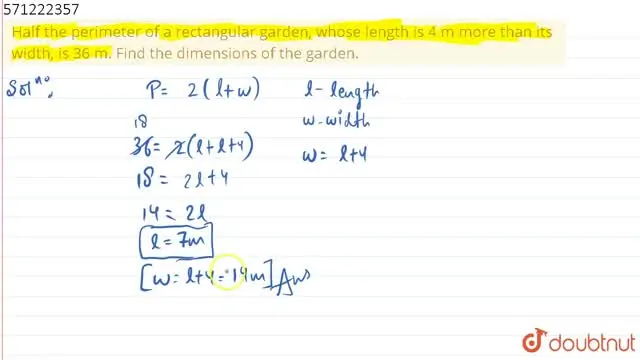 571222357
Half the perimeter of a rectangular garden, whose length is 4 m more than its
width, is 36 m. Find the dimensions of the garden.
Solⁿ°. P= 2(l+w) l- length
18 w-width
36= 2(l+l+4) w= l+4
18= 2l+4
14= 2l
l=7m
[w=l+4=14m] Ans
doubtnut